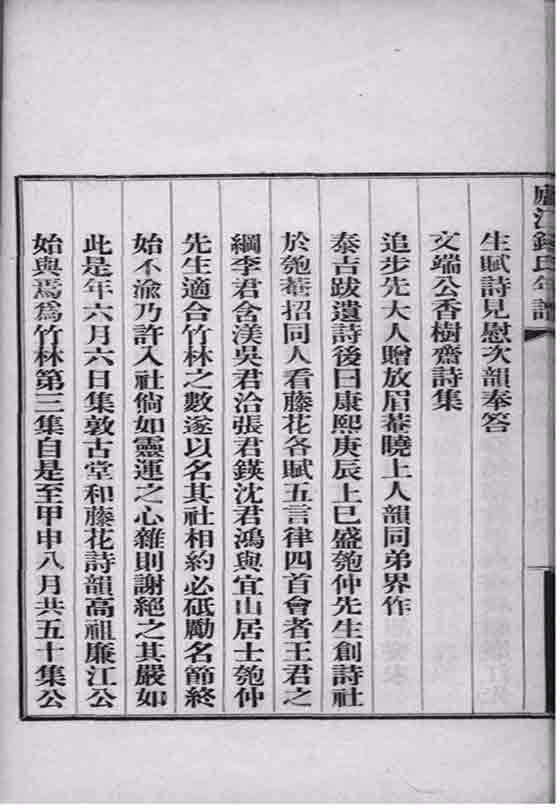 廬江錢氏年譜
生賦詩見慰次韻奉答
文端公香樹齋詩集
追步先大人贈放眉菴曉上人韻同弟界作
泰吉跋遺詩後曰康熙庚辰上巳盛匏仲先生創詩社
於匏菴招同人看藤花各賦五言律四首會者王君之
綱李君含渼吳君洽張君鍈沈君鴻與宜山居士匏仲
先生適合竹林之數遂以名其社相約必砥勵名節終
始不渝乃許入社倘如靈運之心雜則謝絕之其嚴如
此是年六月六日集敦古堂和藤花詩韻高祖廉江公
始與焉爲竹林第三集自是至甲申八月共五十集公